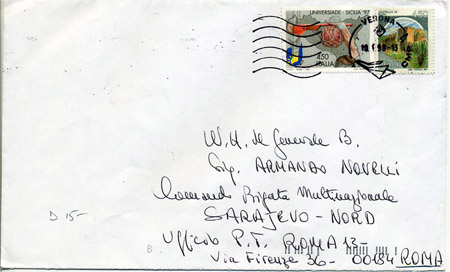 UNIVERSIADE - SICILIA '97
450
ITALIA
450
VERONA
W. H. de Generale B.
Sig. ARMANDO NOVELLI
Comando Brigata Multinazionale
SARAJEVO - NORD
Ufficio P.T. ROMA 13 -
Via Firenze 36 - 00184 ROMA
D 15-
B